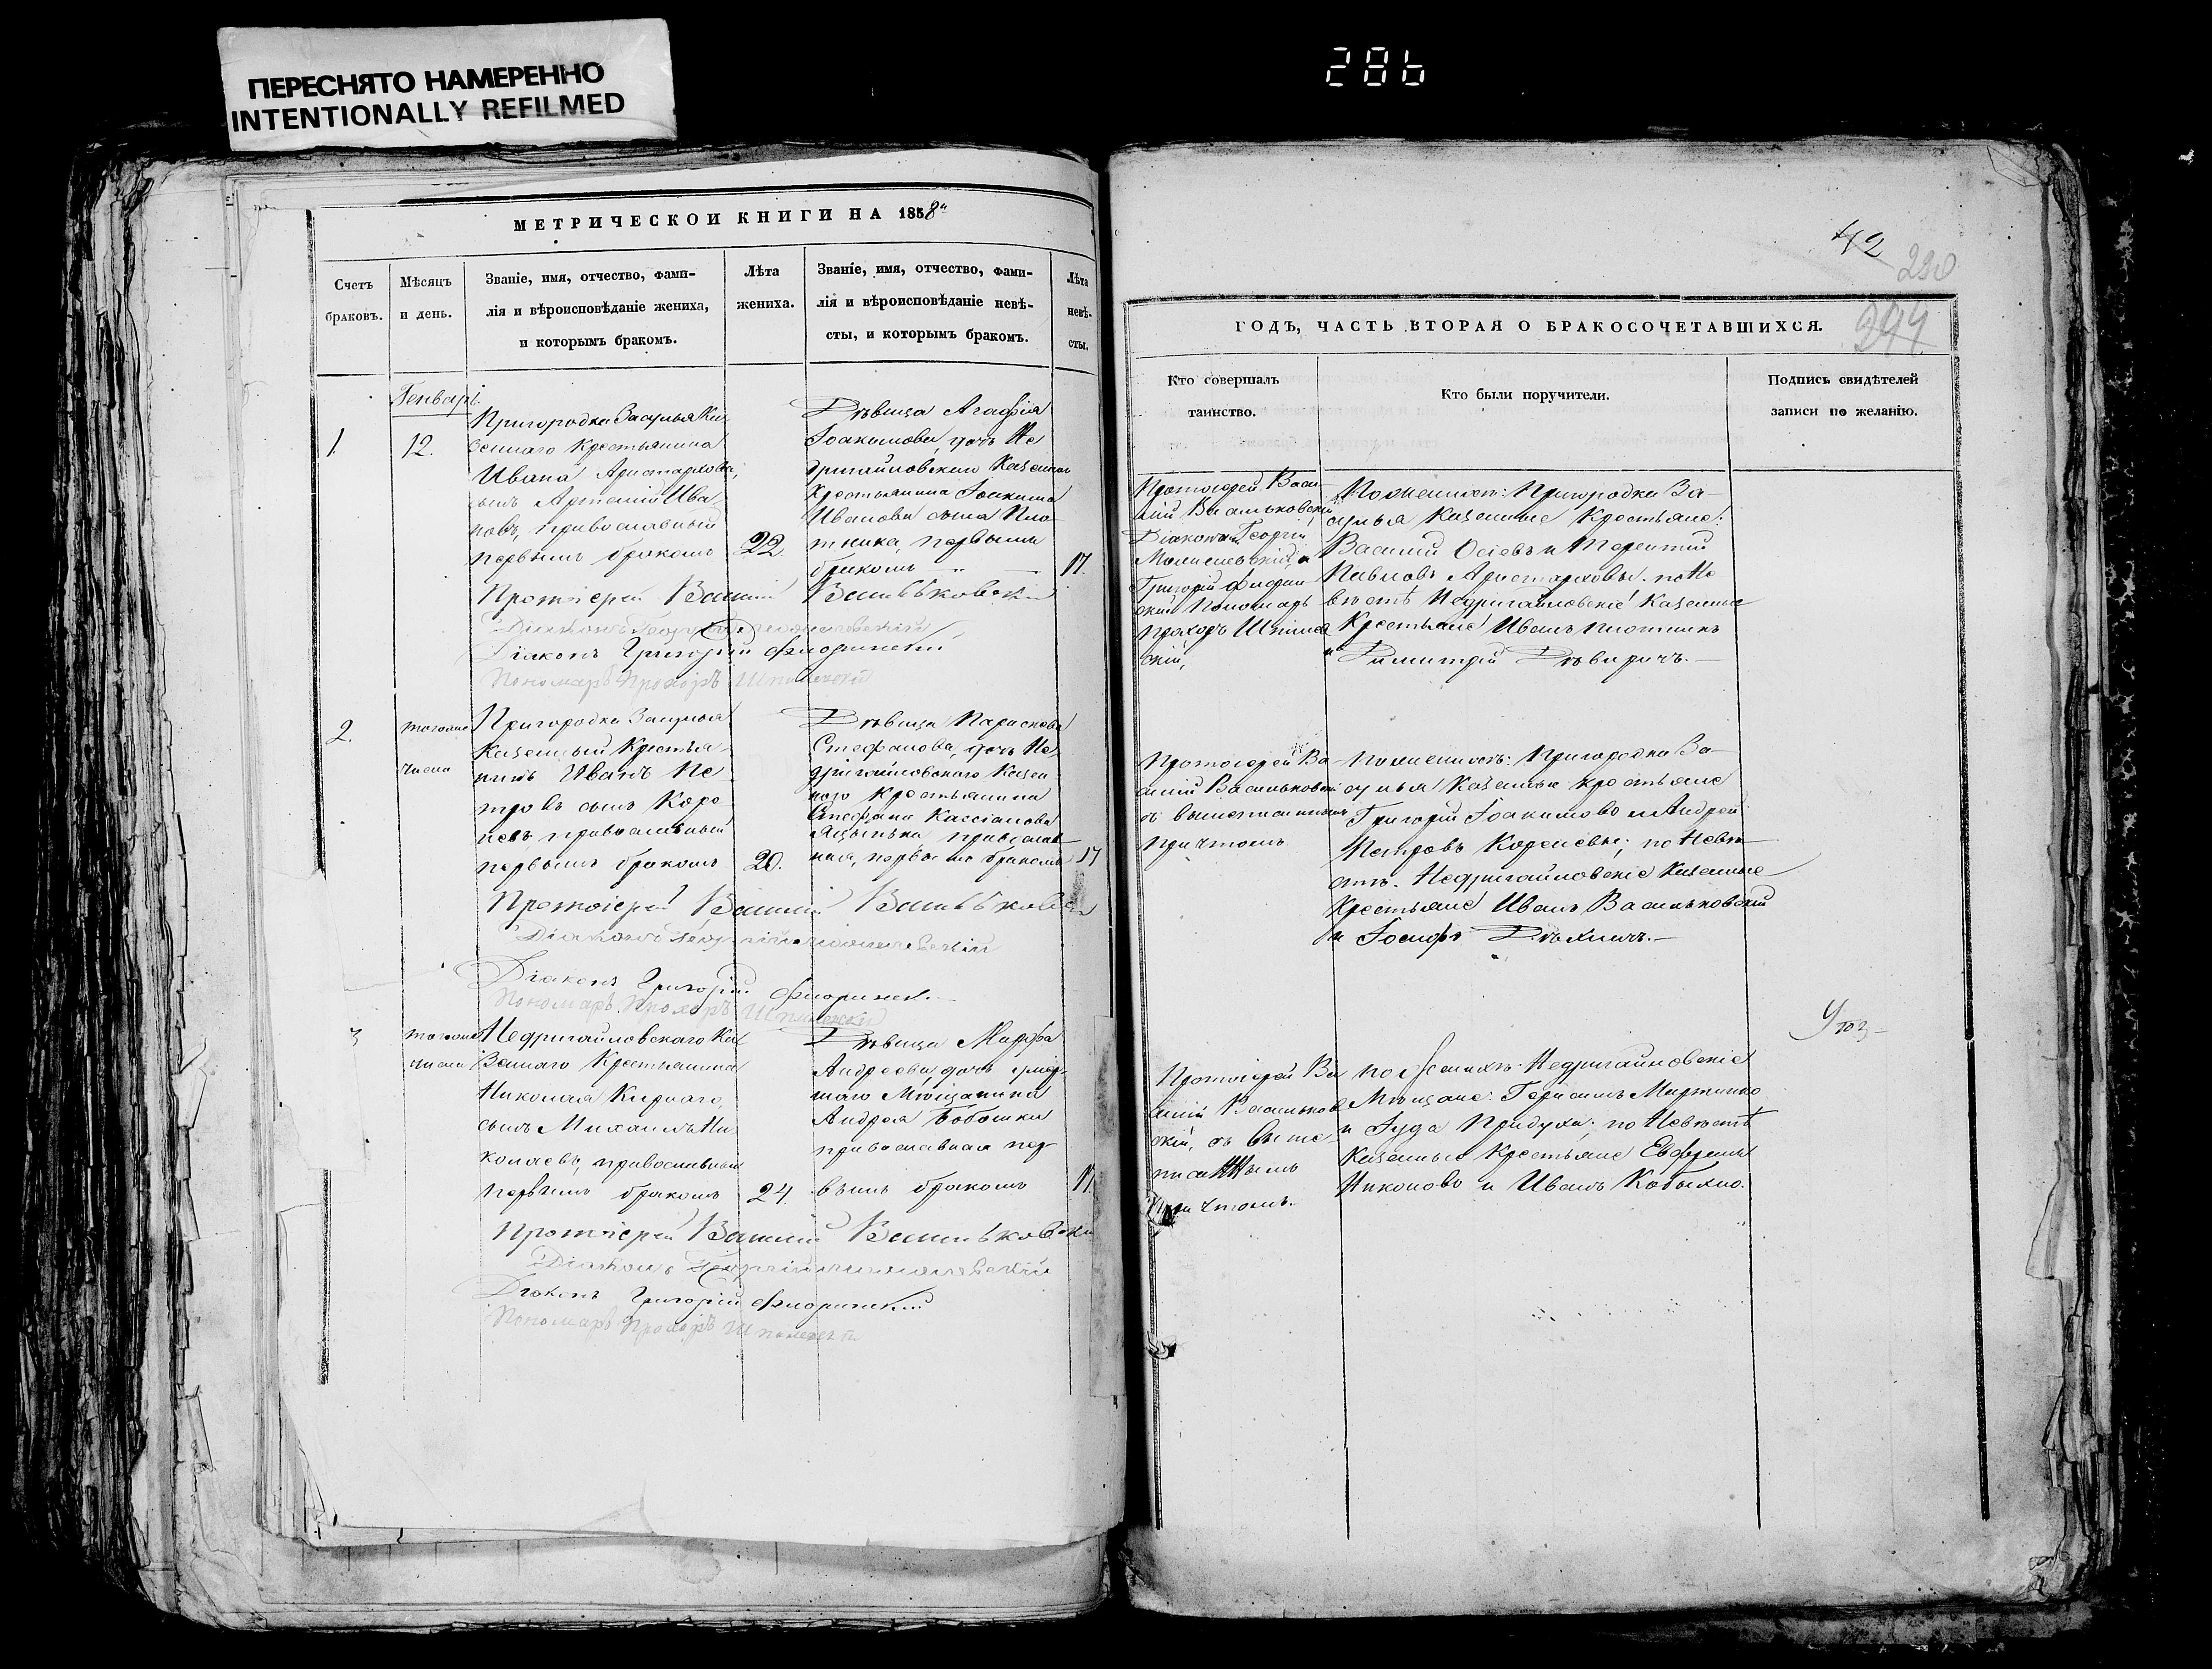 ПЕРЕСНЯТО НАМЕРЕННО
INTENTIONALLY REFILMED
286
МЕТРИЧЕСКОЙ КНИГИ НА 1858й
Счетъ браковъ.
Мѣсяцъ и день.
Званіе, имя, отчество, фами-
лія и вѣроисповѣданіе жениха,
и которымъ бракомъ.
Лѣта жениха.
Званіе, имя, отчество, фами-
лія и вѣроисповѣданіе невѣ-
сты, и которымъ бракомъ.
Лѣта невѣ-
сты.
Генварь
1.
12.
Пригородка Засулья Ка-
зеннаго Крестьянина
Ивана Аристархова,
сынъ Артемій Ива
новъ, православный
первымъ бракомъ
22.
Дѣвица Агафія
Іоакимова, дочь Не
дригайловскаго Казеннаго
Крестьянина Іоакима
Иванова сына Пло-
тника, первымъ
бракомъ
17.
Протоіерей Василій Васильковскій
Діаконъ Георгій
Діаконъ Григорій Флоринскій
Пономарь Прохоръ
2.
тогоже
числа
Пригородка Засулья
Казенный Крестья-
нинъ Иванъ Пе
тровъ сынъ Коре
невъ православный
первымъ бракомъ
20.
Дѣвица Параскева
Стефанова, дочь Не
дригайловскаго Казен
наго Крестьянина
Стефана Кассіанова
православ
ная, первымъ бракомъ
17
Протоіерей Василій Васильковскій
Діаконъ Георгій
Діаконъ Григорій Флоринскій
Пономарь Прохоръ
3
тогоже
числа
Недригайловскаго Ка
зеннаго Крестьянина
Николая Кирнаго,
сынъ Михаилъ Ни
колаевъ, православный
первымъ бракомъ
24.
Дѣвица Марфа
Андреева, дочь умер
шаго Мѣщанина
Андрея Бабошки
православная пер
вымъ бракомъ
17.
Протоіерей Василій Васильковскій
Діаконъ Георгій
Діаконъ Григорій Флоринскій
Пономарь Прохоръ
42
290
294
ГОДЪ, ЧАСТЬ ВТОРАЯ О БРАКОСОЧЕТАВШИХСЯ.
Кто совершалъ
таинство.
Кто были поручители.
Подпись свидѣтелей
записи по желанію.
Протоіерей Васи-
лій Васильковскій
Діаконъ Георгій
Григорій Флорин
скій Пономарь
Прохоръ
скій,
По женихѣ: Пригородка За-
сулья Казенные Крестьяне:
Василій Осіевъ и Терентій
Павловъ Аристарховы. по Не
вѣстѣ Недригайловскіе Казенные
Крестьяне Иванъ Плотникъ
и Димитрій
Протоіерей Ва
силій Васильковскій
съ вышеписаннымъ
причтомъ
По женихѣ: Пригородка За-
сулья Казенные крестьяне
Григорій Іоакимовъ и Андрей
Петровъ Кореневы; по Невѣ-
стѣ. Недригайловскіе Казенные
Крестьяне Иванъ Васильковскій
и Іосифъ
Протоіерей Ва
силій Васильков
скій, съ выше-
писаннымъ
причтомъ.
по женихѣ: Недригайловскіе
Мѣщане: Герасимъ Мартинко
и Іуда Придуха; по Невѣстѣ
Казенные Крестьяне Евфремъ
Никоново и Иванъ Кобылко.